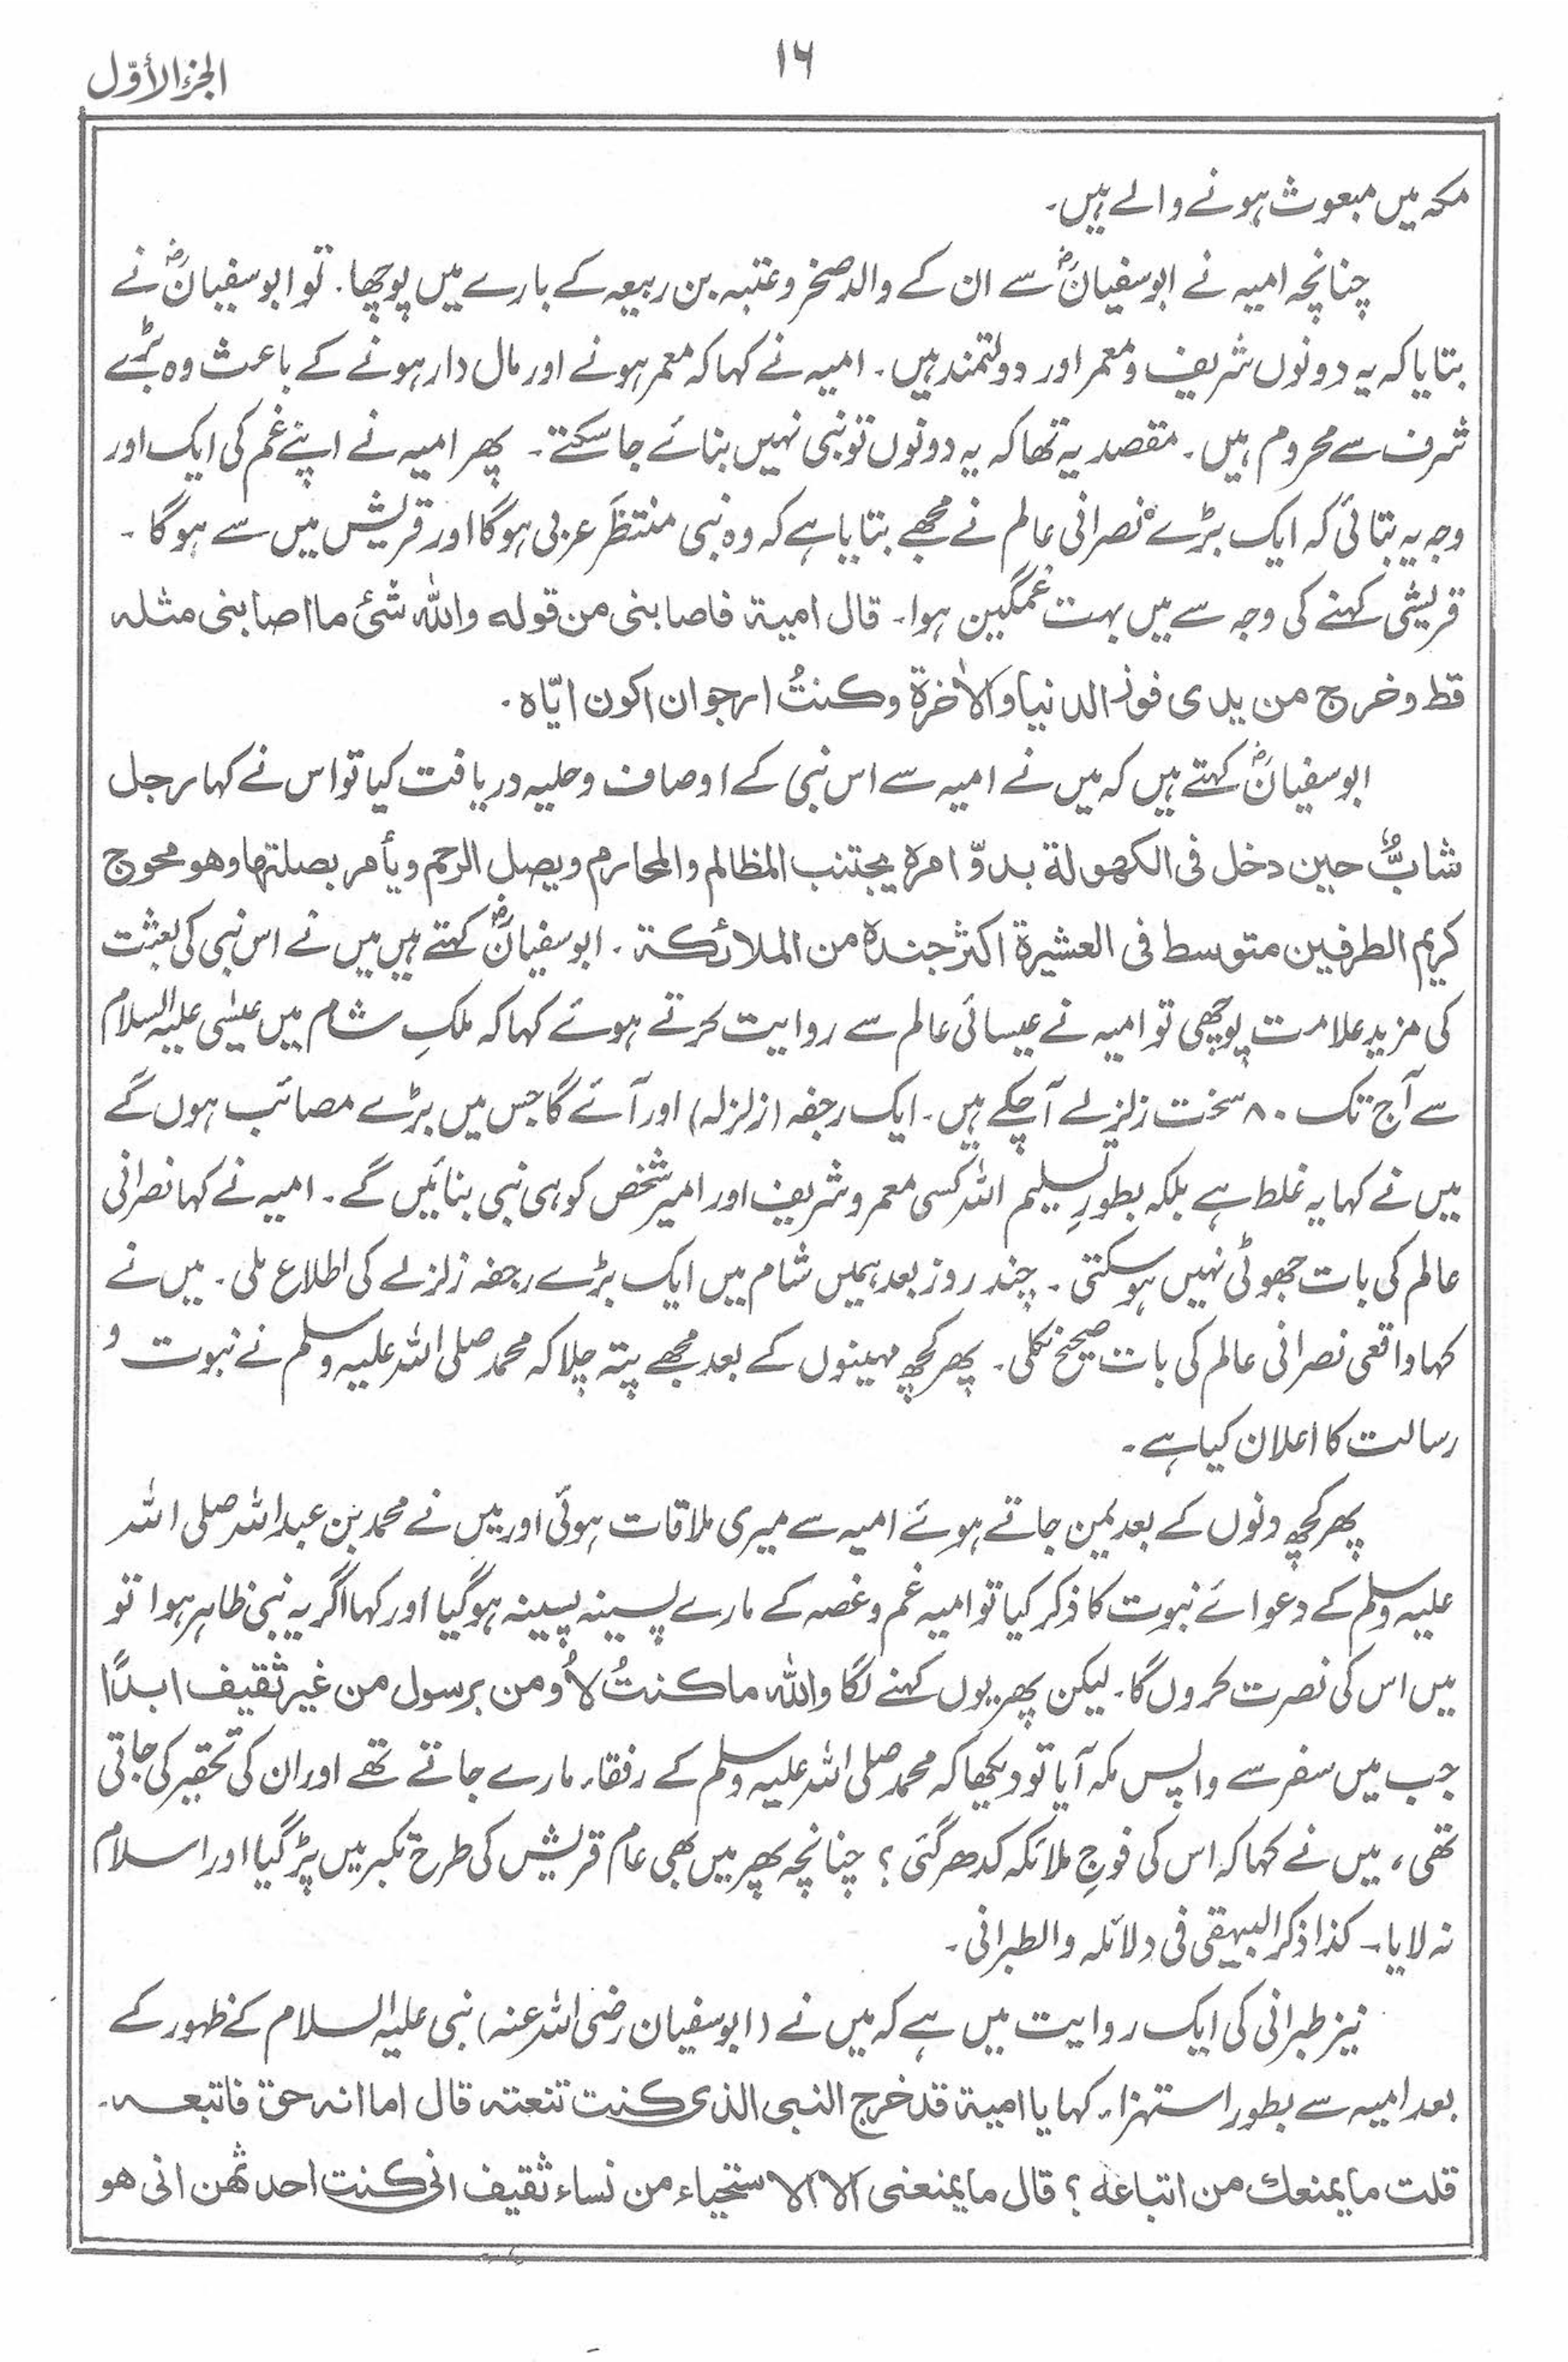 ۱۶
الجزء الأوّل
مکہ میں مبعوث ہونے والے ہیں۔
چنانچہ امیہ نے ابوسفیانؓ سے ان کے والد صخر و عتبہ بن ربیعہ کے بارے میں پوچھا۔ تو ابوسفیانؓ نے
بتایا کہ یہ دونوں شریف و معمر اور دولتمند ہیں۔ امیہ نے کہا کہ معمر ہونے اور مال دار ہونے کے باعث وہ بڑے
شرف سے محروم ہیں۔ مقصد یہ تھا کہ یہ دونوں تو نبی نہیں بنائے جا سکتے۔ پھر امیہ نے اپنے غم کی ایک اور
وجہ یہ بتائی کہ ایک بڑے نصرانی عالم نے مجھے بتایا ہے کہ وہ نبی منتظَر عربی ہوگا اور قریش میں سے ہوگا۔
قریشی کہنے کی وجہ سے میں بہت غمگین ہوا۔ قال امیۃ فاصابنی من قولہ واللہ شئ ما اصابنی مثلہ
قط وخرج من یدی فوز الدنیا والاٰخرۃ وکنتُ ارجو ان اکون ایّاہ۔
ابوسفیانؓ کہتے ہیں کہ میں نے امیہ سے اس نبی کے اوصاف و حلیہ دریافت کیا تو اس نے کہا رجل
شابٌّ حین دخل فی الکھولۃ بدوّ امرہ یجتنب المظالم والمحارم ویصل الرحم ویأمر بصلتھا وھو محوج
کریم الطرفین متوسط فی العشیرۃ اکثر جندہ من الملائکۃ۔ ابوسفیانؓ کہتے ہیں میں نے اس نبی کی بعثت
کی مزید علامت پوچھی تو امیہ نے عیسائی عالم سے روایت کرتے ہوئے کہا کہ ملکِ شام میں عیسٰی علیہ السلام
سے آج تک ۸۰ سخت زلزلے آچکے ہیں۔ ایک رجفہ (زلزلہ) اور آئے گا جس میں بڑے مصائب ہوں گے
میں نے کہا یہ غلط ہے بلکہ بطورِ تسلیم اللہ کسی معمر و شریف اور امیر شخص کو ہی نبی بنائیں گے۔ امیہ نے کہا نصرانی
عالم کی بات جھوٹی نہیں ہوسکتی۔ چند روز بعد ہمیں شام میں ایک بڑے رجفہ زلزلے کی اطلاع ملی۔ میں نے
کہا واقعی نصرانی عالم کی بات صحیح نکلی۔ پھر کچھ مہینوں کے بعد مجھے پتہ چلا کہ محمد صلی اللہ علیہ وسلم نے نبوت و
رسالت کا اعلان کیا ہے۔
پھر کچھ دنوں کے بعد یمن جاتے ہوئے امیہ سے میری ملاقات ہوئی اور میں نے محمد بن عبد اللہ صلی اللہ
علیہ وسلم کے دعوائے نبوت کا ذکر کیا تو امیہ غم و غصہ کے مارے پسینہ پسینہ ہوگیا اور کہا اگر یہ نبی ظاہر ہوا تو
میں اس کی نصرت کروں گا۔ لیکن پھر یوں کہنے لگا واللہ ما کنتُ لاُومن برسول من غیر ثقیف ابدًا
جب میں سفر سے واپس مکہ آیا تو دیکھا کہ محمد صلی اللہ علیہ وسلم کے رفقاء مارے جاتے تھے اور ان کی تحقیر کی جاتی
تھی، میں نے کہا کہ اس کی فوجِ ملائکہ کدھر گئی؟ چنانچہ پھر میں بھی عام قریش کی طرح تکبر میں پڑ گیا اور اسلام
نہ لایا۔ کذا ذکر البیہقی فی دلائلہ والطبرانی۔
نیز طبرانی کی ایک روایت میں ہے کہ میں نے (ابوسفیان رضی اللہ عنہ) نبی علیہ السلام کے ظہور کے
بعد امیہ سے بطور استہزاء کہا یا امیۃ قد خرج النبی الذی کنت تنعتہ قال اما انہ حق فاتبعہ۔
قلت ما یمنعک من اتباعہ؟ قال ما یمنعنی الا الاستحیاء من نساء ثقیف انی کنت احدثھن انی ھو